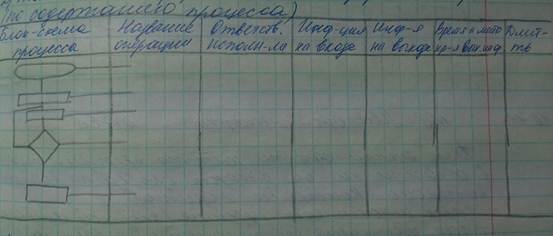 (по содержанию процесса)
Блок-схема
процесса
Название
операции
Ответств.
Исполн-ль
Инф-ция
на входе
Инф-я
на выходе
Время и место
Длит-
ть